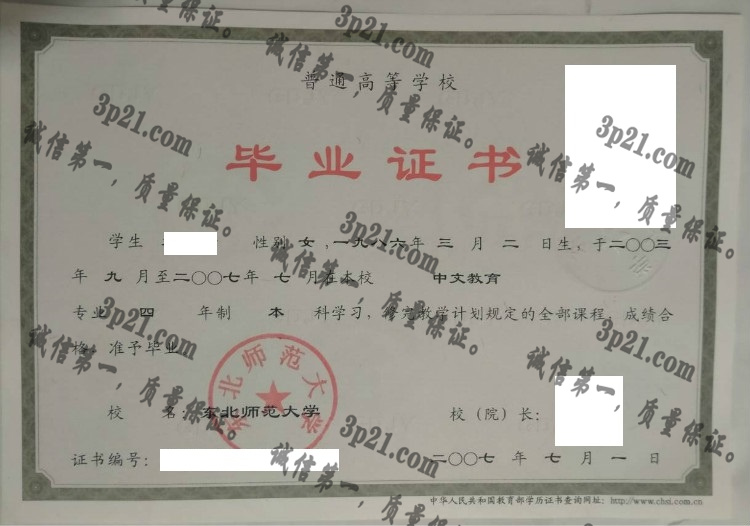 普通高等学校
毕业证书
学生 性别 女 ,一九八六年 三 月 二 日生,于二〇〇三
年 九 月至二〇〇七年 七 月在本校 中文教育
专业 四 年制 本 科学习,修完教学计划规定的全部课程,成绩合
格,准予毕业
东北师范大学
校 名:东北师范大学 校(院)长:
证书编号: 二〇〇七 年 七 月 一 日
中华人民共和国教育部学历证书查询网址:http://www.chsi.com.cn
3p21.com
诚信第一,质量保证。
3p21.com
诚信第一,质量保证。
3p21.com
诚信第一,质量保证。
3p21.com
诚信第一,质量保证。
3p21.com
诚信第一,质量保证。
3p21.com
诚信第一,质量保证。
3p21.com
诚信第一,质量保证。